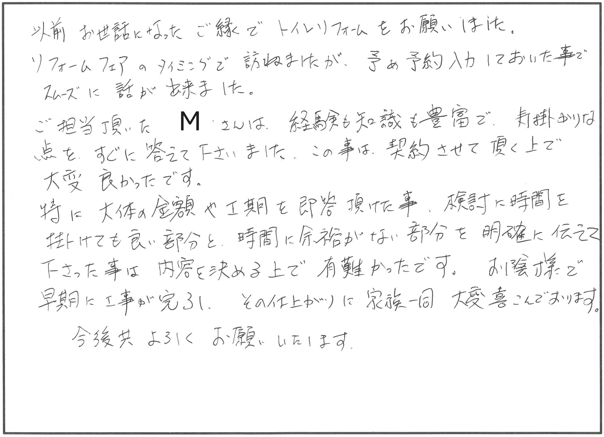 以前 お世話になった ご縁で トイレリフォームをお願いしました。
リフォームフェアのタイミングで 訪ねましたが、予め予約入力しておいた事で
スムーズに 話が出来ました。
ご担当頂いた M さんは、経験も知識も豊富で、気掛かりな
点を すぐに 答えて下さいました。この事は、契約させて頂く上で
大変 良かったです。
特に 大体の金額や工期を即答頂けた事、検討に時間を
掛けても良い部分と、時間に余裕がない部分を 明確に伝えて
下さった事は 内容を決める上で 有難かったです。 お陰様で
早期に工事が完了し、その仕上がりに 家族一同 大変喜こんでおります。
今後共 よろしく お願いいたします。